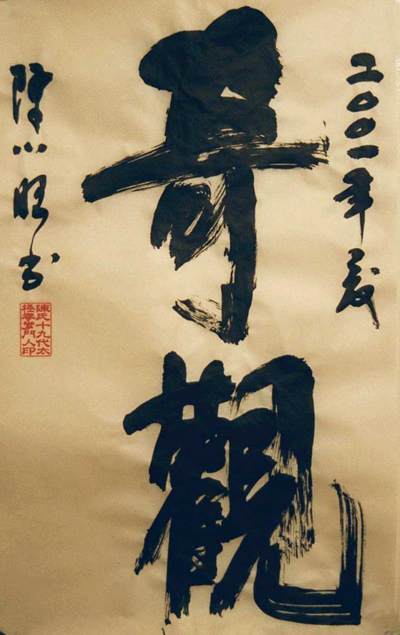 二〇〇一年夏
奇觀
陳小旺书
陳氏十九代太
極拳掌門人印